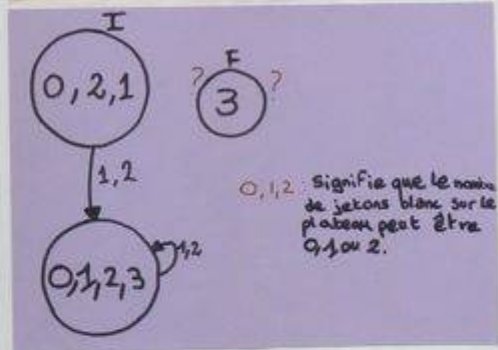 I
0, 2, 1
F
? 3 ?
1, 2
0, 1, 2 : Signifie que le nombre
de jetons blanc sur le
plateau peut être
0, 1 ou 2.
0, 1, 2, 3
1, 2